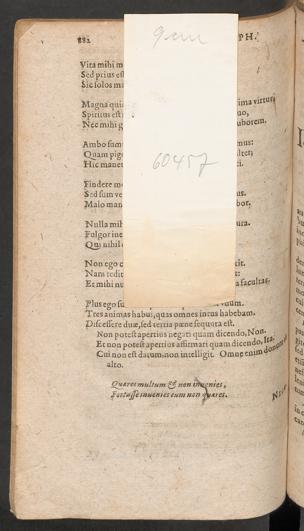 882
PH.
9 cm
60457
Vita mihi m
Sed prius est
Sic solos ma
Magna qui
ima virtus,
Spiritus est
uo,
Nec mihi g
uborem.
Ambo sum
mus:
Quam pig
Hic mane
Findere me
Sed sum ve
us.
Malo man
bor.
Nulla mih
ura.
Fulgor ine
Qui nihil
Non ego c
xit.
Nam redit
Et mihi nu
a facultas.
Plus ego su
duum.
Tres animas habui, quas omnes intus habebam.
Discessere duæ, sed tertia pæne sequuta est.
Non potest apertius negati quam dicendo, Non.
Et non potest apertius affirmari quam dicendo, Ita.
Cui non est datum, non intelligit. Omne enim donum
alto.
Quæres multum & non inuenies,
Fortasse inuenies cum non quæres.